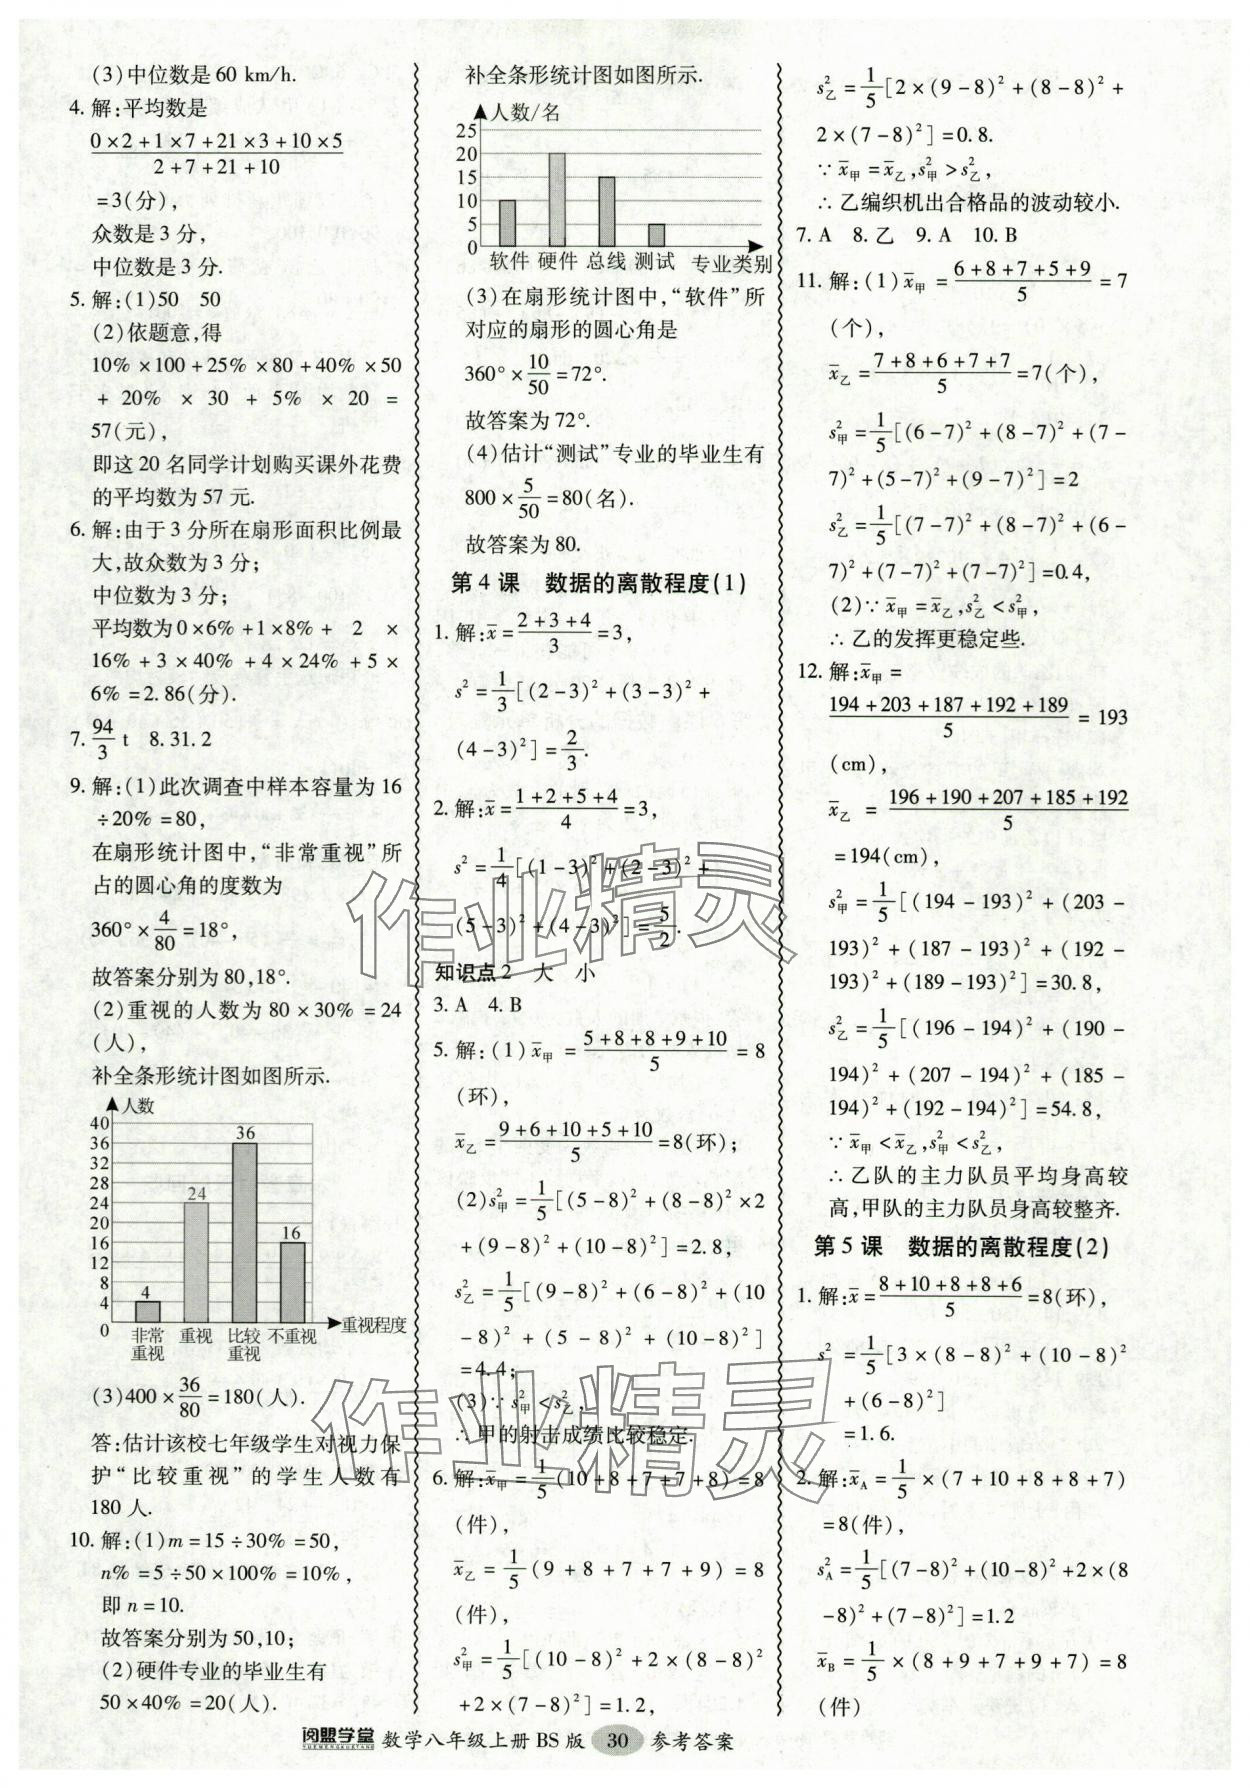 (3)中位数是60 km/h.
4. 解:平均数是
(0×2+1×7+21×3+10×5)/(2+7+21+10)
=3(分),
众数是3分,
中位数是3分.
5. 解:(1)50　50
(2)依题意,得
10%×100+25%×80+40%×50
+20%×30+5%×20=
57(元),
即这20名同学计划购买课外花费
的平均数为57元.
6. 解:由于3分所在扇形面积比例最
大,故众数为3分;
中位数为3分;
平均数为0×6%+1×8%+2×
16%+3×40%+4×24%+5×
6%=2.86(分).
7. 94/3 t　8. 31.2
9. 解:(1)此次调查中样本容量为16
÷20%=80,
在扇形统计图中,“非常重视”所
占的圆心角的度数为
360°×4/80=18°,
故答案分别为80,18°.
(2)重视的人数为80×30%=24
(人),
补全条形统计图如图所示.
人数
40
36
32
28
24
20
16
12
8
4
0
4
24
36
16
非常重视 重视 比较重视 不重视 重视程度
(3)400×36/80=180(人).
答:估计该校七年级学生对视力保
护“比较重视”的学生人数有
180人.
10. 解:(1)m=15÷30%=50,
n%=5÷50×100%=10%,
即n=10.
故答案分别为50,10;
(2)硬件专业的毕业生有
50×40%=20(人).
补全条形统计图如图所示.
人数/名
25
20
15
10
5
0
软件 硬件 总线 测试 专业类别
(3)在扇形统计图中,“软件”所
对应的扇形的圆心角是
360°×10/50=72°.
故答案为72°.
(4)估计“测试”专业的毕业生有
800×5/50=80(名).
故答案为80.
第4课　数据的离散程度(1)
1. 解:x̄=(2+3+4)/3=3,
s²=1/3[(2-3)²+(3-3)²+
(4-3)²]=2/3.
2. 解:x̄=(1+2+5+4)/4=3,
s²=1/4[(1-3)²+(2-3)²+
(5-3)²+(4-3)²]=5/2.
知识点2　大　小
3. A　4. B
5. 解:(1)x̄甲=(5+8+8+9+10)/5=8
(环),
x̄乙=(9+6+10+5+10)/5=8(环);
(2)s²甲=1/5[(5-8)²+(8-8)²×2
+(9-8)²+(10-8)²]=2.8,
s²乙=1/5[(9-8)²+(6-8)²+(10
-8)²+(5-8)²+(10-8)²]
=4.4;
(3)∵s²甲<s²乙,
∴甲的射击成绩比较稳定.
6. 解:x̄甲=1/5(10+8+7+7+8)=8
(件),
x̄乙=1/5(9+8+7+7+9)=8
(件),
s²甲=1/5[(10-8)²+2×(8-8)²
+2×(7-8)²]=1.2,
s²乙=1/5[2×(9-8)²+(8-8)²+
2×(7-8)²]=0.8.
∵x̄甲=x̄乙,s²甲>s²乙,
∴乙编织机出合格品的波动较小.
7. A　8. 乙　9. A　10. B
11. 解:(1)x̄甲=(6+8+7+5+9)/5=7
(个),
x̄乙=(7+8+6+7+7)/5=7(个),
s²甲=1/5[(6-7)²+(8-7)²+(7-
7)²+(5-7)²+(9-7)²]=2
s²乙=1/5[(7-7)²+(8-7)²+(6-
7)²+(7-7)²+(7-7)²]=0.4,
(2)∵x̄甲=x̄乙,s²乙<s²甲,
∴乙的发挥更稳定些.
12. 解:x̄甲=
(194+203+187+192+189)/5=193
(cm),
x̄乙=(196+190+207+185+192)/5
=194(cm),
s²甲=1/5[(194-193)²+(203-
193)²+(187-193)²+(192-
193)²+(189-193)²]=30.8,
s²乙=1/5[(196-194)²+(190-
194)²+(207-194)²+(185-
194)²+(192-194)²]=54.8,
∵x̄甲<x̄乙,s²甲<s²乙,
∴乙队的主力队员平均身高较
高,甲队的主力队员身高较整齐.
第5课　数据的离散程度(2)
1. 解:x̄=(8+10+8+8+6)/5=8(环),
s²=1/5[3×(8-8)²+(10-8)²
+(6-8)²]
=1.6.
2. 解:x̄A=1/5×(7+10+8+8+7)
=8(件),
s²A=1/5[(7-8)²+(10-8)²+2×(8
-8)²+(7-8)²]=1.2
x̄B=1/5×(8+9+7+9+7)=8
(件)
阅盟学堂 数学八年级上册 BS版 30 参考答案
作业精灵
作业精灵